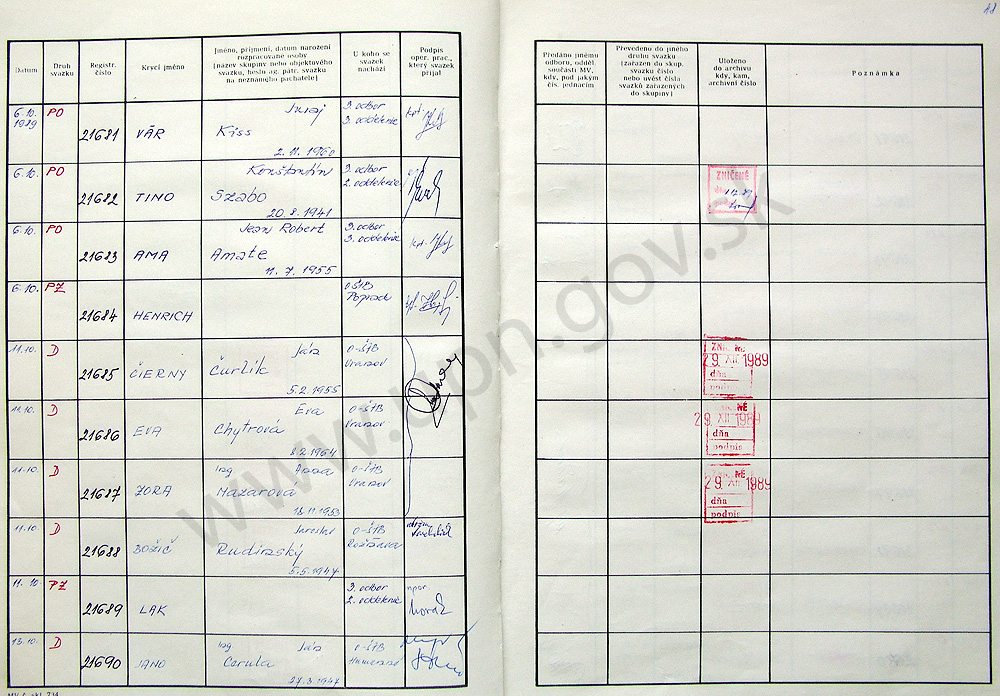 48
Datum
Druh svazku
Registr. číslo
Krycí jméno
Jméno, příjmení, datum narození rozpracované osoby (název skupiny nebo objektového svazku, heslo ag. pátr. svazku na neznámého pachatele)
U koho se svazek nachází
Podpis oper. prac., který svazek přijal
Předáno jinému odboru, odděl. součásti MV, kdy, pod jakým čís. jednacím
Převedeno do jiného druhu svazku (zařazen do skup. svazku číslo nebo uvést čísla svazků zařazených do skupiny)
Uloženo do archivu kdy, kam, archivní číslo
Poznámka
6.10. 1989 PO 21681 VÁR Juraj Kiss 2.11.1960 3. odbor 3. oddelenie kpt.
6.10. PO 21682 TINO Konštantín Szabo 20.8.1941 3. odbor 2. oddelenie
ZNIČENÉ
6.10. PO 21683 AMA Jean Robert Amate 11.7.1955 3. odbor 3. oddelenie kpt.
6.10. PZ 21684 HENRICH OŠtB Poprad
11.10. D 21685 ČIERNY Ján Čurlík 5.2.1955 O-ŠtB Vranov
29. XII. 1989
dňa
podpis
11.10. D 21686 EVA Eva Chytrová 8.2.1964 O-ŠtB Vranov
29. XII. 1989
dňa
podpis
11.10. D 21687 ZORA Ing Anna Mazarová 18.11.1953 O-ŠtB Vranov
29. XII. 1989
dňa
podpis
11.10. D 21688 BOŽIČ Jaroslav 5.5.1947 O-ŠtB Rožňava
11.10. PZ 21689 LAK 3. odbor 2. oddelenie npor.
13.10. D 21690 JANO Ing Ján Carula 27.3.1947 O-ŠtB Humenné
www.upn.gov.sk